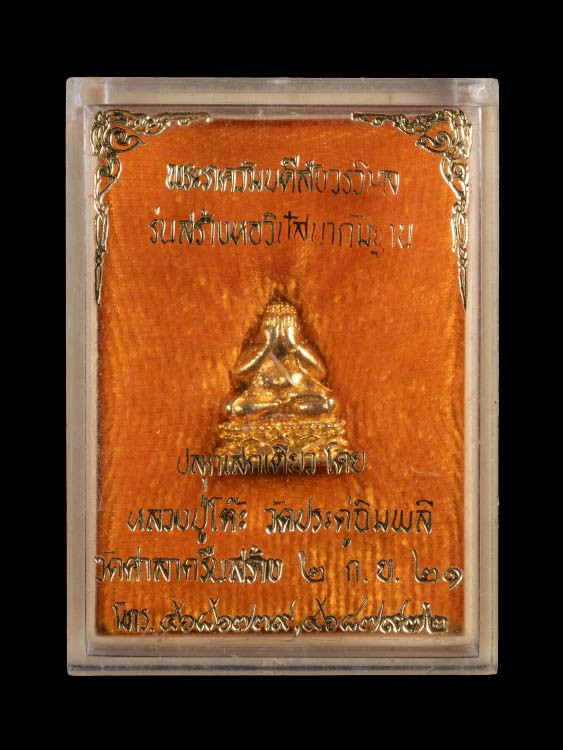 พระภควัมบดีสังวรวิมล
รุ่นสร้างหอวิปัสนากัมฐาน
ปลุกเสกเดียว โดย
หลวงปู่โต๊ะ วัดประดู่ฉิมพลี
วัดศาลาครืนสร้าง ๒ ก.ย. ๒๑
โทร. ๔๖๘๖๗๓๙, ๔๖๘๗๙๗๒